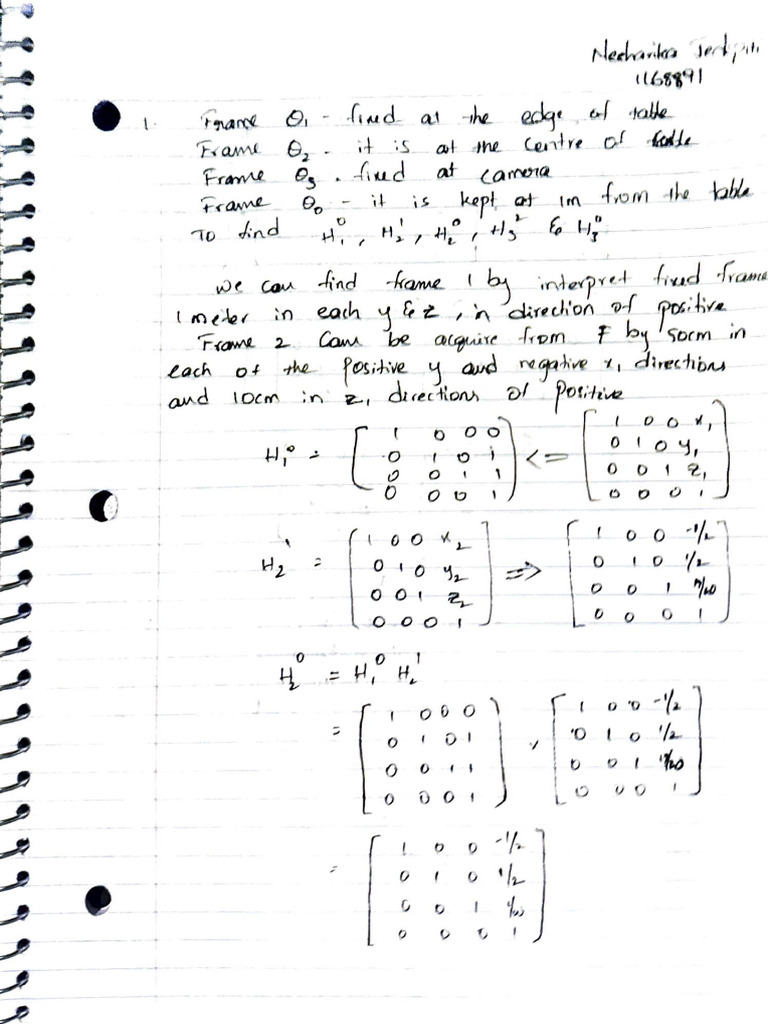 1168891
1. Frame θ₁ - fixed at the edge of table
Frame θ₂ - it is at the centre of table
Frame θ₃ - fixed at camera
Frame θ₀ - it is kept at 1m from the table
To find H₁⁰, H₂¹, H₂⁰, H₃² & H₃⁰
we can find frame 1 by interpret fixed frame
1 meter in each y & z, in direction of positive
Frame 2 Can be acquire from F by 50cm in
each of the positive y and negative x, directions
and 10cm in z, directions of positive
H₁⁰ = [1 0 0 0; 0 1 0 1; 0 0 1 1; 0 0 0 1] <= [1 0 0 x₁; 0 1 0 y₁; 0 0 1 z₁; 0 0 0 1]
H₂¹ = [1 0 0 x₂; 0 1 0 y₂; 0 0 1 z₂; 0 0 0 1] => [1 0 0 -1/2; 0 1 0 1/2; 0 0 1; 0 0 0 1]
H₂⁰ = H₁⁰ H₂¹
= [1 0 0 0; 0 1 0 1; 0 0 1 1; 0 0 0 1] , [1 0 0 -1/2; 0 1 0 1/2; 0 0 1; 0 0 0 1]
= [1 0 0 -1/2; 0 1 0 1/2; 0 0 1; 0 0 0 1]